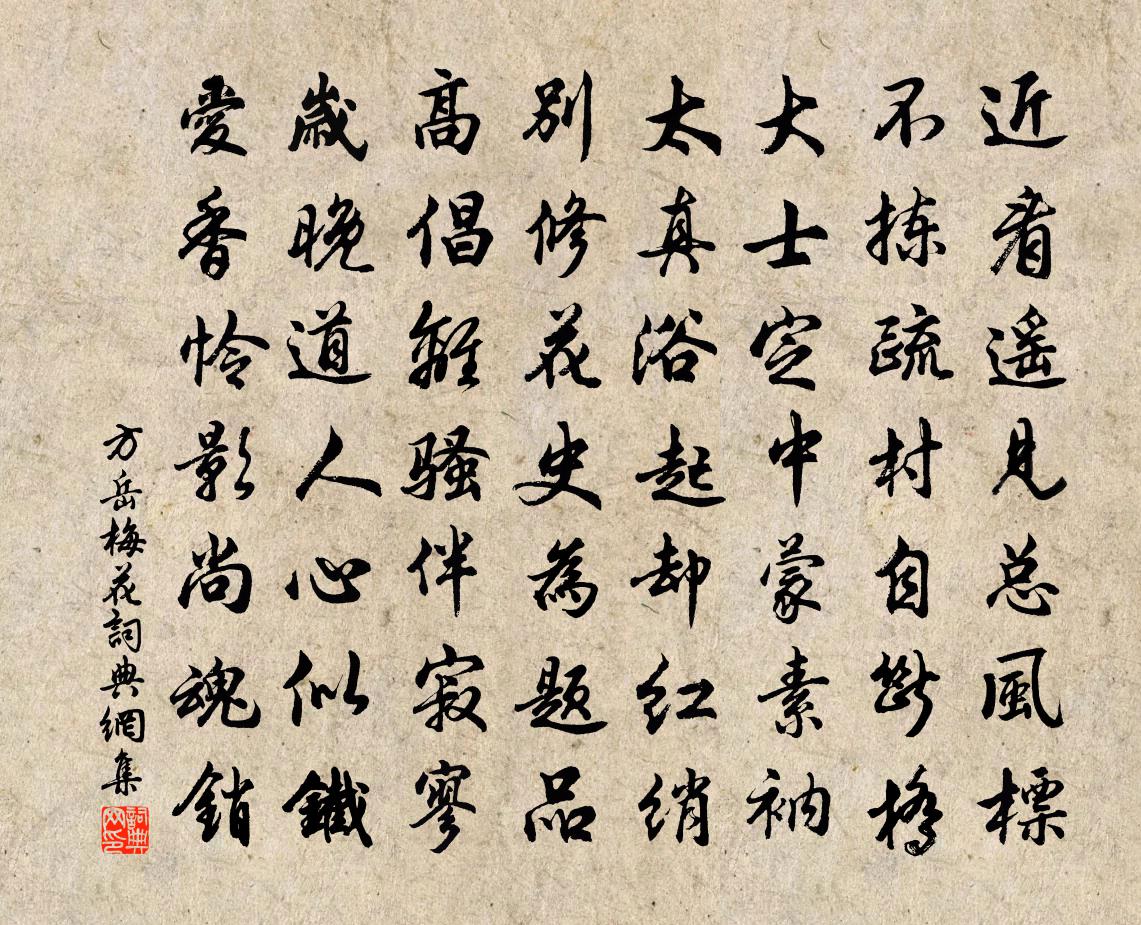 近看遥見总風標
不揀疏村自斷橋
大士定中蒙素衲
太真浴起却红绡
別修花史為題品
高倡離騷伴寂寥
歲晚道人心似鐵
愛香怜影尚魂銷
方岳梅花詞典網集
詞典網印